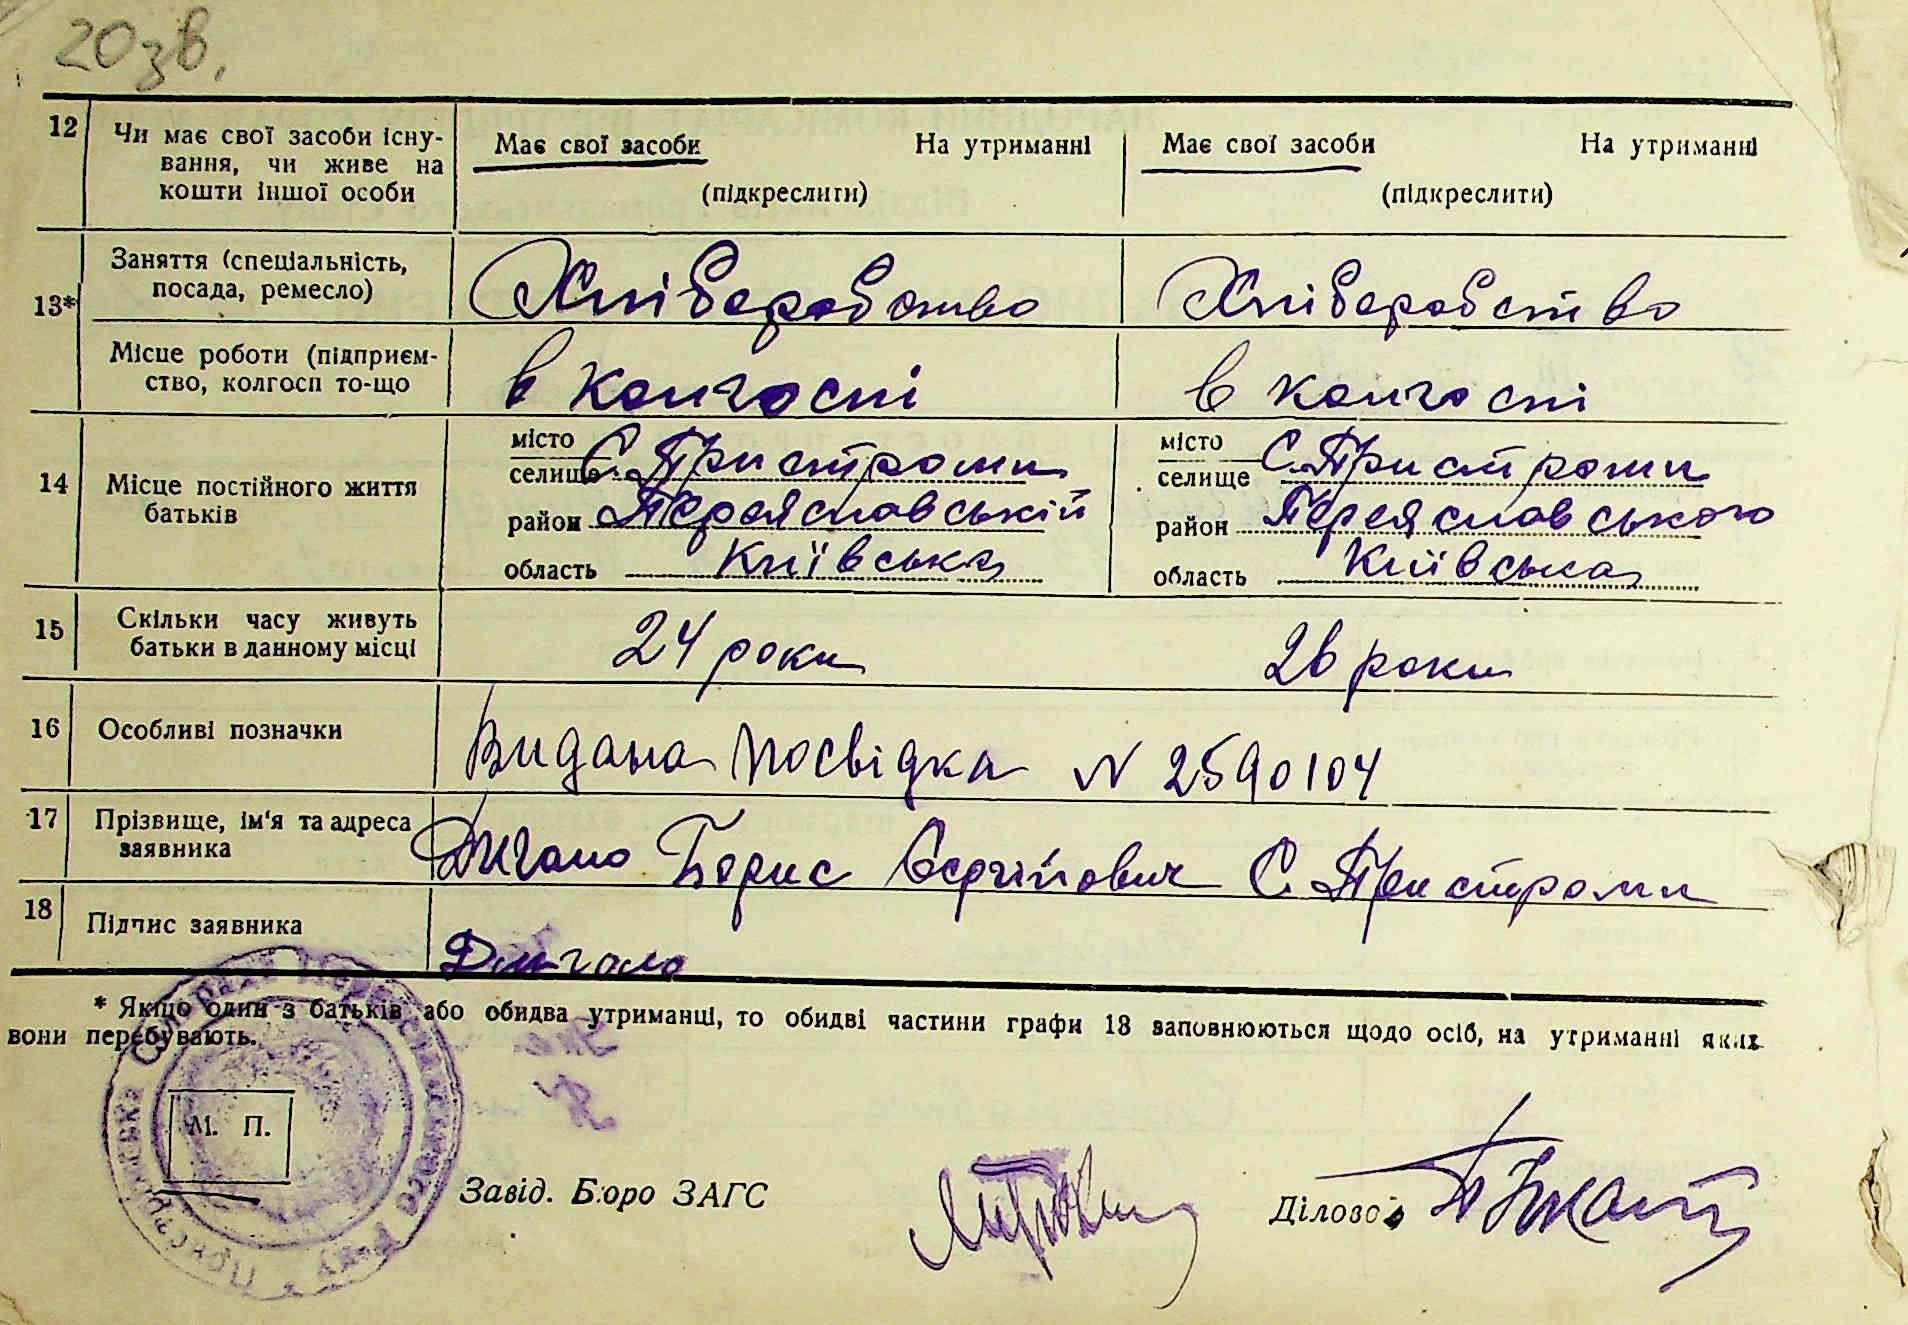 20зв.
12 Чи має свої засоби існу-
вання, чи живе на
кошти іншої особи
Має свої засоби На утриманні Має свої засоби На утриманні
(підкреслити) (підкреслити)
13* Заняття (спеціальність,
посада, ремесло)
Хліборобство Хліборобство
Місце роботи (підприєм-
ство, колгосп то-що
в колгоспі в колгоспі
14 Місце постійного життя
батьків
місто
селище С. Пристроми
район Переяславській
область Київська
місто
селище С. Пристроми
район Переяславського
область Київська
15 Скільки часу живуть
батьки в данному місці
24 роки 26 роки
16 Особливі позначки
Видана посвідка N 2590104
17 Прізвище, ім'я та адреса
заявника
Дигало Борис Сергійович С. Пристроми
18 Підпис заявника
Дигало
* Якщо один з батьків або обидва утриманці, то обидві частини графи 13 заповнюються щодо осіб, на утриманні яких
вони перебувають.
М. П.
Завід. Бюро ЗАГС
Діловод